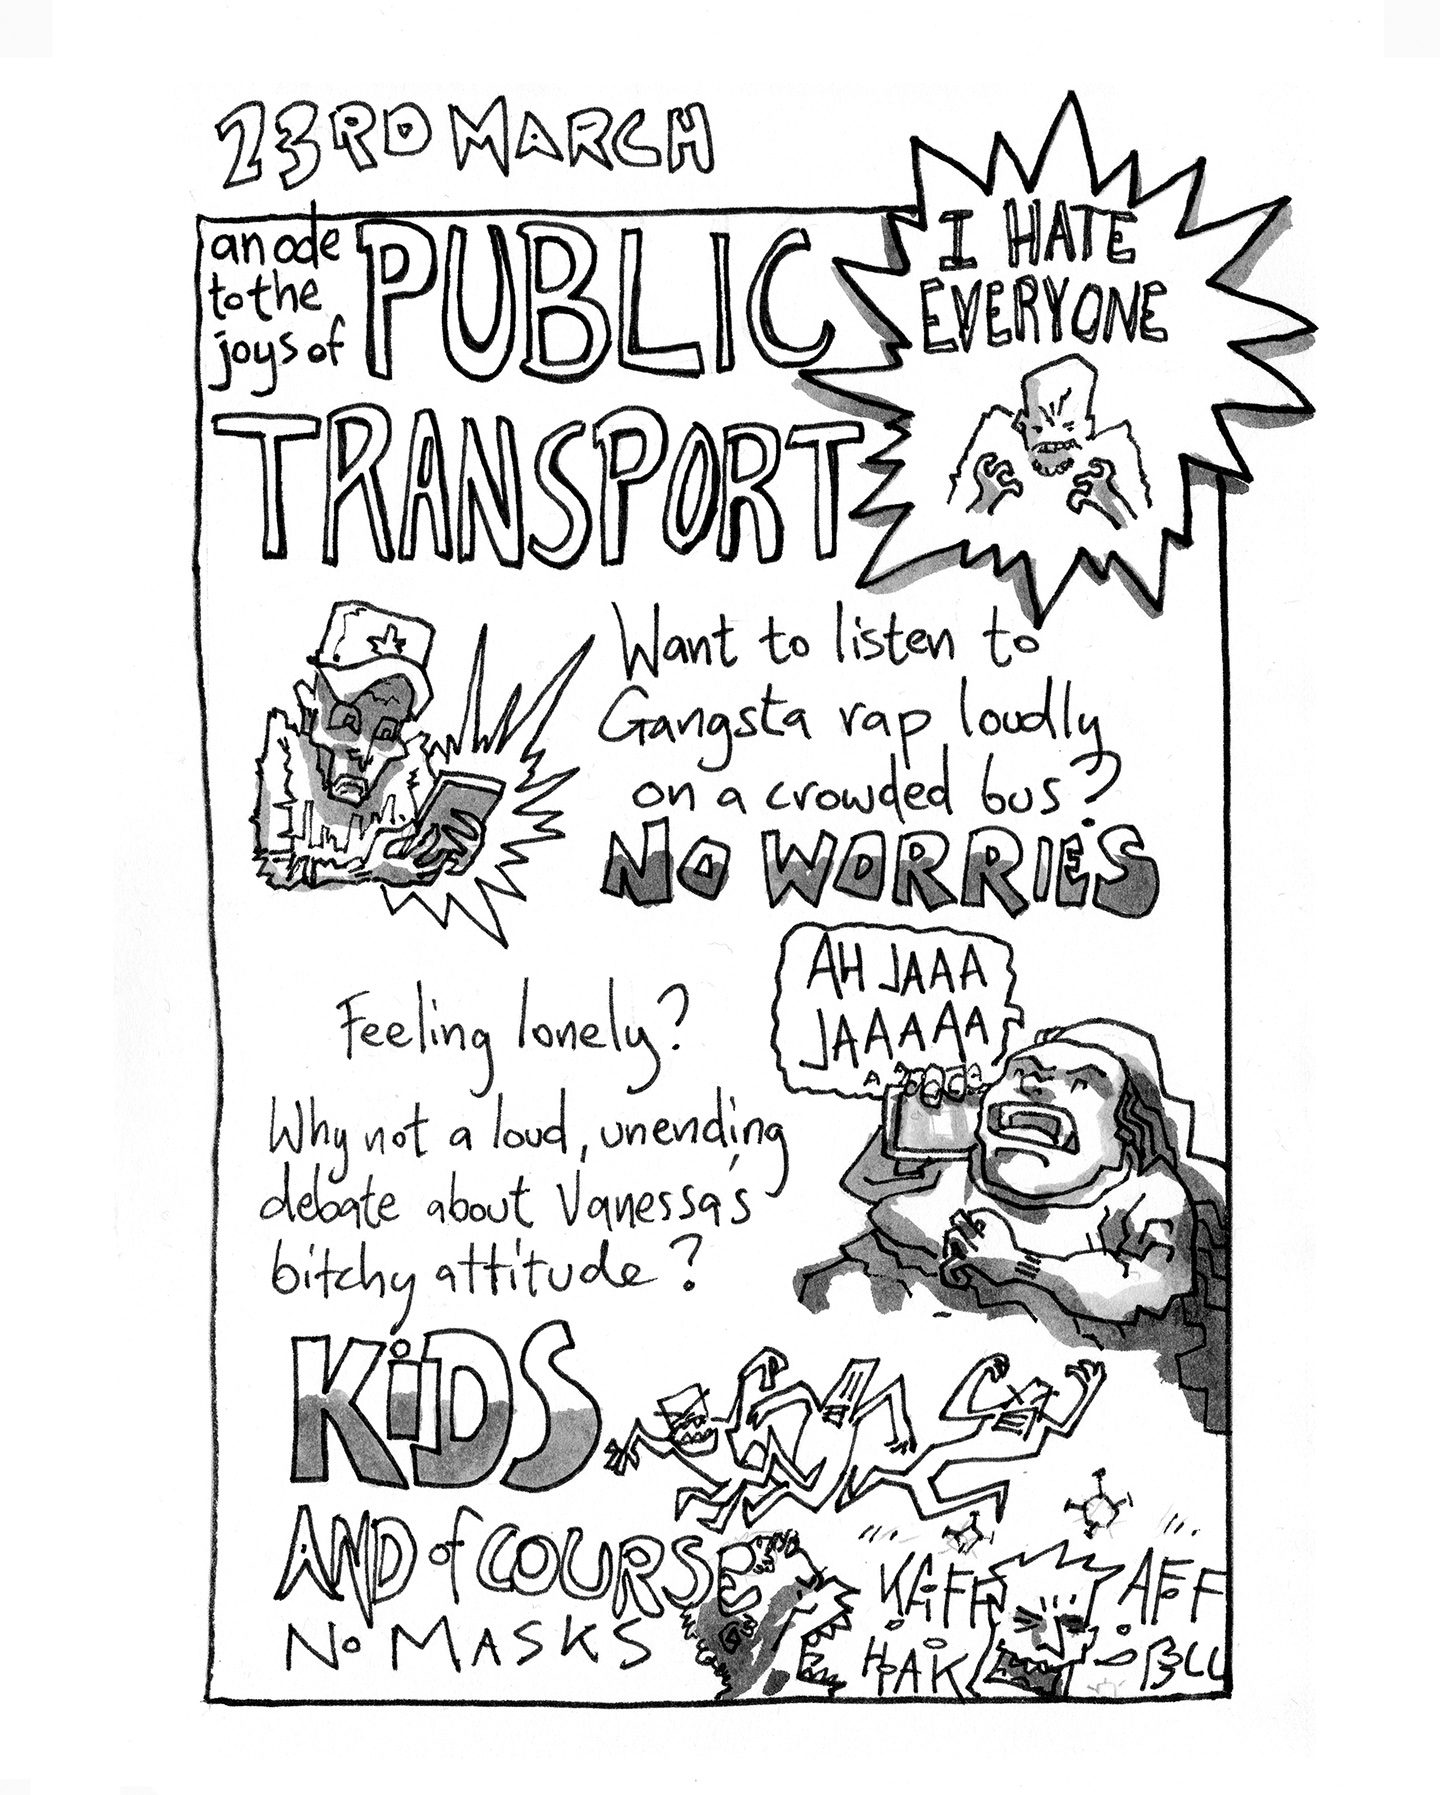 23RD MARCH
an ode
to the
joys of
PUBLIC
TRANSPORT
I HATE
EVERYONE
Want to listen to
Gangsta rap loudly
on a crowded bus?
NO WORRIES
AH JAAA
JAAAAA
Feeling lonely?
Why not a loud, unending
debate about Vanessa's
bitchy attitude?
KiDS
AND of COURSE
No MASKS
KAFF
HAK
AFF
BLU